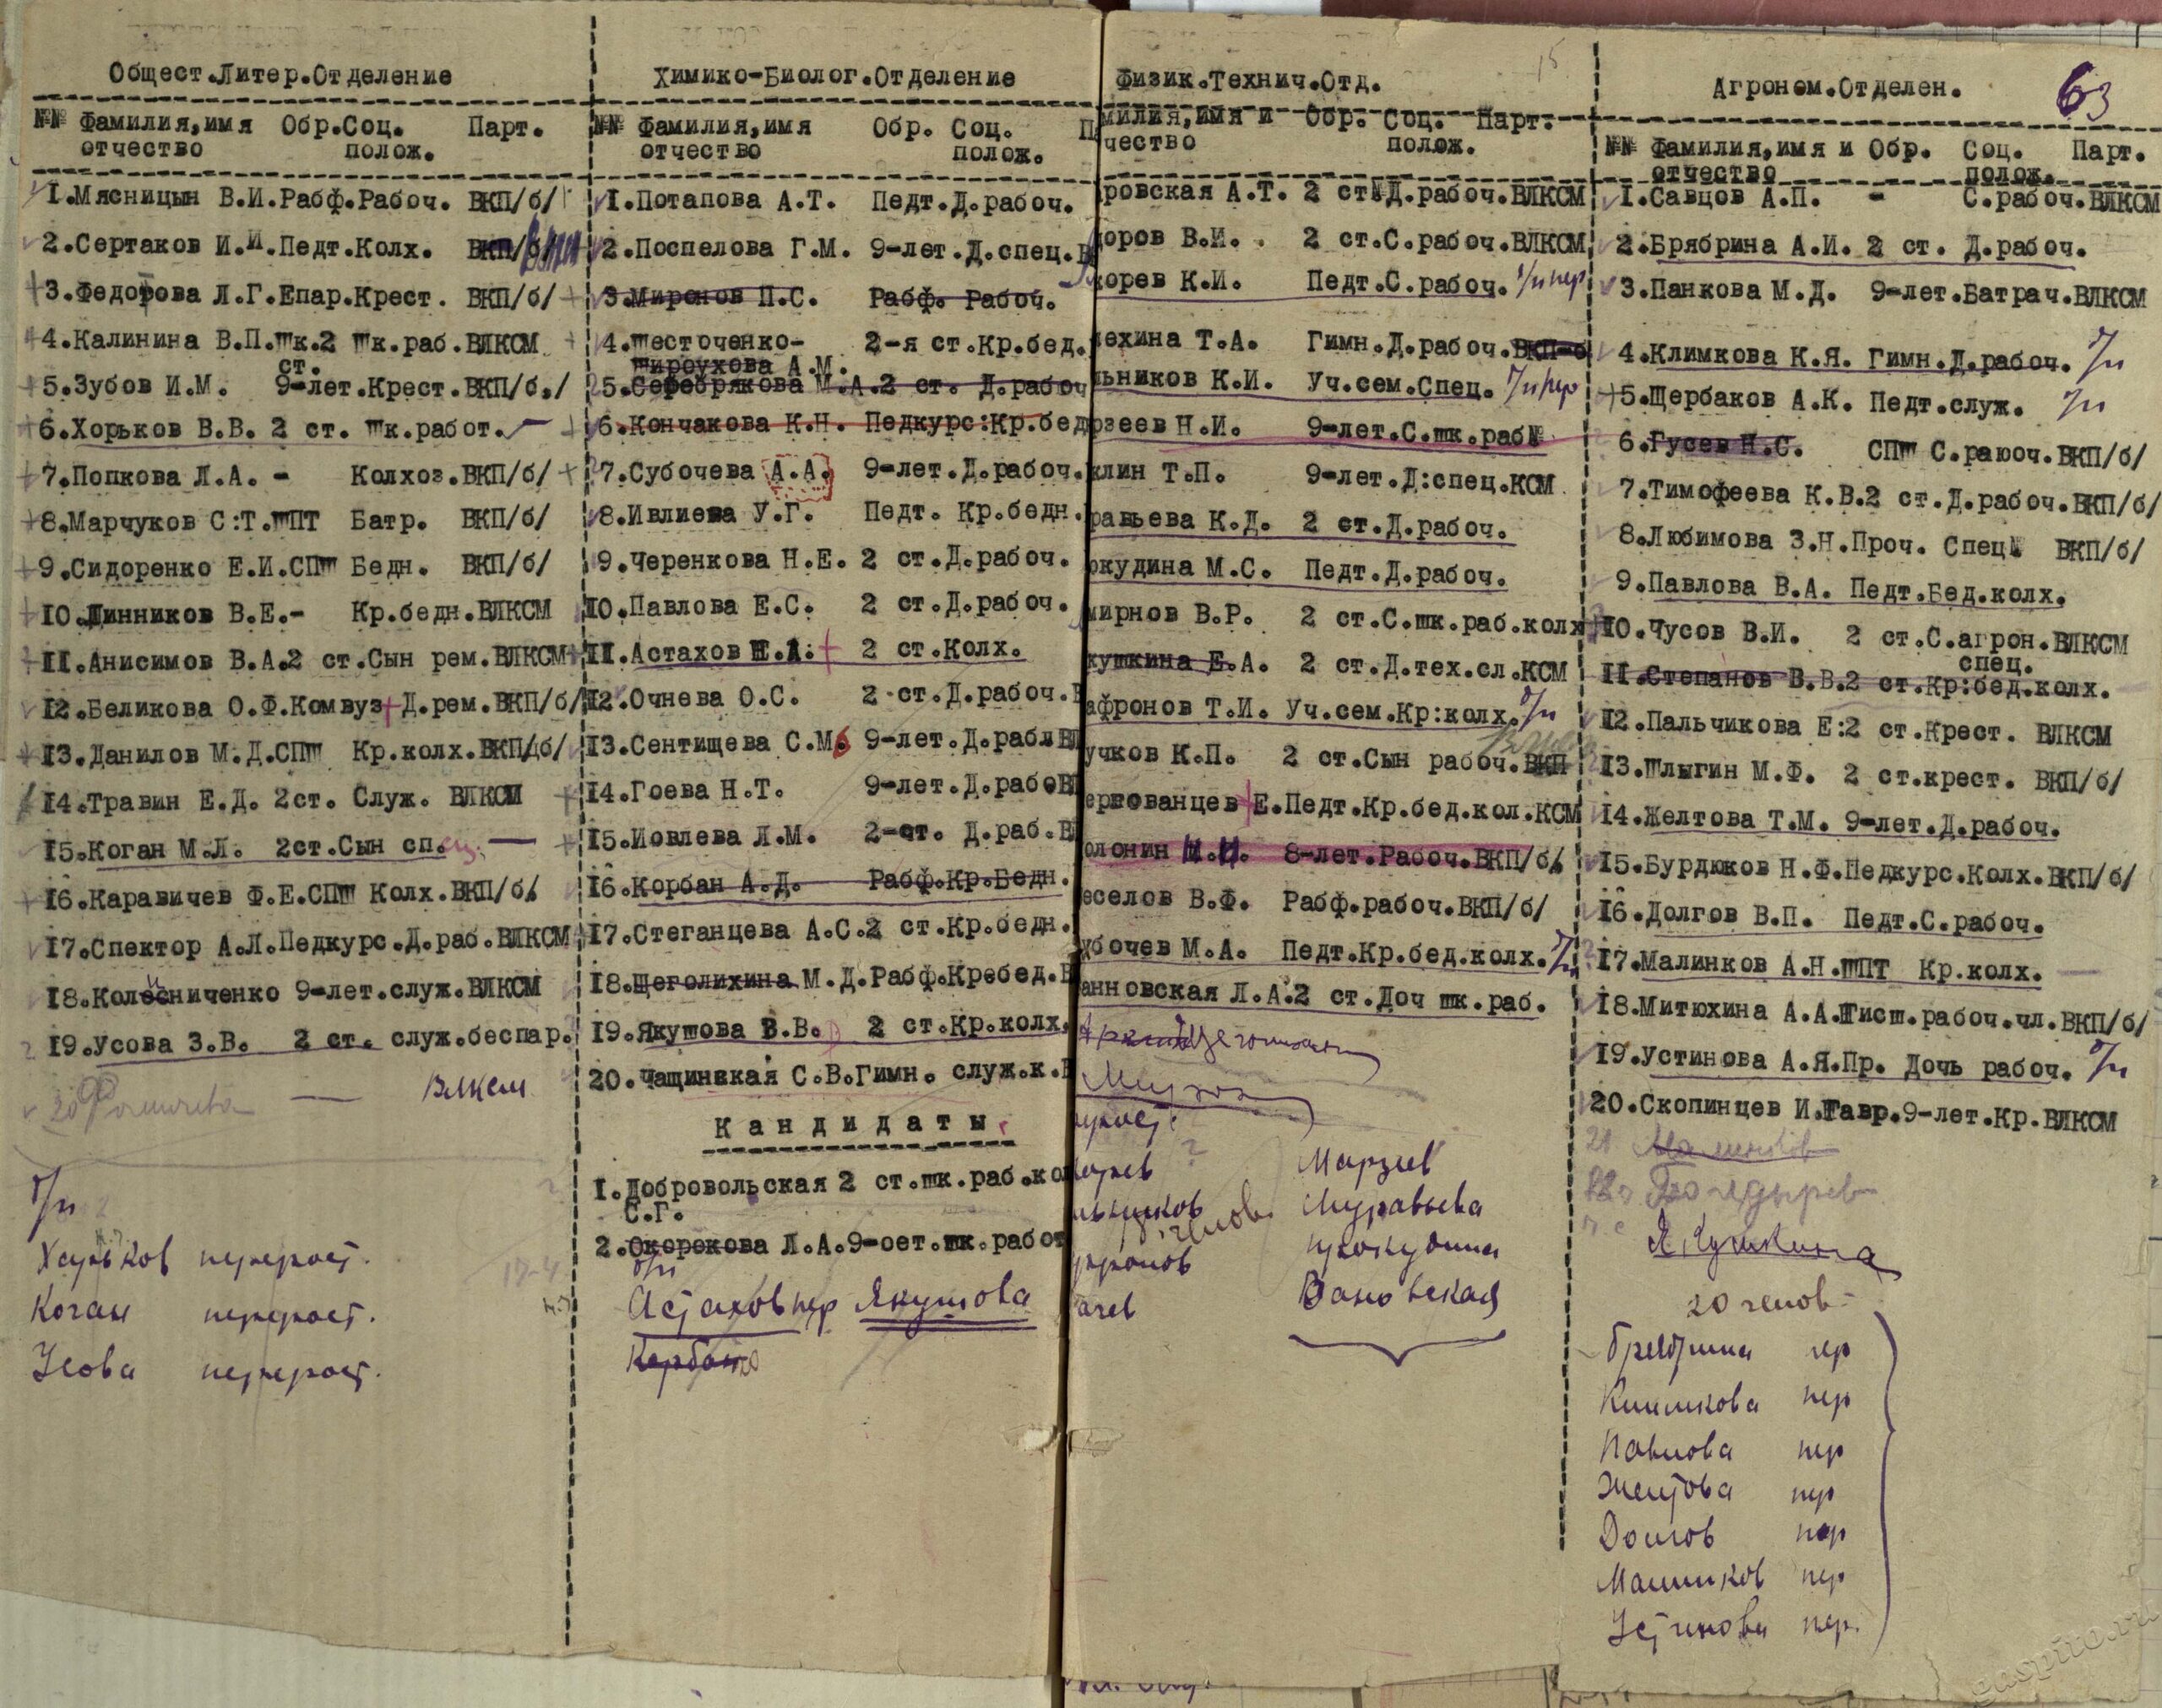 Общест.Литер.Отделение
№№ Фамилия,имя Обр.Соц. Парт.
отчество полож.
I.Мясницын В.И.Рабф.Рабоч. ВКП/б/
2.Сертаков И.И.Педт.Колх.
3.Федотова Л.Г.Епар.Крест. ВКП/б/
4.Калинина В.П.Шк.2 Шк.раб.ВЛКСМ
ст.
5.Зубов И.М. 9-лет.Крест.ВКП/б./
6.Хорьков В.В. 2 ст. Шк.работ.
7.Попкова Л.А. - Колхоз.ВКП/б/
8.Марчуков С:Т.ШПТ Батр. ВКП/б/
9.Сидоренко Е.И.СПШ Бедн. ВКП/б/
IO.Шинников В.Е.- Кр.бедн.ВЛКСМ
II.Анисимов В.А.2 ст.Сын рем.ВЛКСМ
I2.Беликова О.Ф.Комвуз Д.рем.ВКП/б/
I3.Данилов М.Д.СПШ Кр.колх.ВКП/б/
I4.Травин Е.Д. 2ст. Служ. ВЛКСМ
I5.Коган М.Л. 2ст.Сын спец.
I6.Каравичев Ф.Е.СПШ Колх.ВКП/б/
I7.Спектор А.Л.Педкурс.Д.раб.ВЛКСМ
I8.Колесниченко 9-лет.служ.ВЛКСМ
I9.Усова З.В. 2 ст. служ.беспар.
20 — ВЛКСМ
Харьков перерост.
Коган перерост.
Усова перерост.
Химико-Биолог.Отделение
№№ Фамилия,имя Обр. Соц. П
отчество полож.
I.Потапова А.Т. Педт.Д.рабоч.
2.Поспелова Г.М. 9-лет.Д.спец.
3.Миронов П.С. Рабф. Рабоч.
4.Шесточенко- 2-я ст.Кр.бед.
Широухова А.М.
5.Серебрякова М.А.2 ст. Д.рабоч
6.Кончакова К.Н. Педкурс:Кр.бед
7.Субочева А.А. 9-лет.Д.рабоч.
8.Ивлиева У.Г. Педт. Кр.бедн.
9.Черенкова Н.Е. 2 ст.Д.рабоч.
IO.Павлова Е.С. 2 ст.Д.рабоч.
II.Астахов 2 ст.Колх.
I2.Очнева О.С. 2 ст.Д.рабоч.
I3.Сентищева С.М. 9-лет.Д.раб.
I4.Гоева Н.Т. 9-лет.Д.раб
I5.Иовлева Л.М. 2-ст. Д.раб.
I6.Корбан А.Д. Рабф.Кр.Бедн.
I7.Стеганцева А.С.2 ст.Кр.бедн.
I8.Щеголихина М.Д.Рабф.Кр.бед.
I9.Якушова В.В. 2 ст.Кр.колх.
20.Чащинская С.В.Гимн. служ.к.
Кандидаты
I.Добровольская 2 ст.шк.раб.ко
С.Г.
2.Окорокова Л.А.9-оет.шк.работ
Астахов пер Якушова
Корбан
Физик.Технич.Отд.
милия,имя и Обр. Соц. Парт.
чество полож.
ровская А.Т. 2 ст Д.рабоч.ВЛКСМ
доров В.И. 2 ст.С.рабоч.ВЛКСМ
хорев К.И. Педт.С.рабоч.
лехина Т.А. Гимн.Д.рабоч.
льников К.И. Уч.сем.Спец.
рзеев Н.И. 9-лет.С.шк.раб
клин Т.П. 9-лет.Д:спец.КСМ
равьева К.Д. 2 ст.Д.рабоч.
окудина М.С. Педт.Д.рабоч.
мирнов В.Р. 2 ст.С.шк.раб.колх
кушкина Е.А. 2 ст.Д.тех.сл.КСМ
афронов Т.И. Уч.сем.Кр:колх.
учков К.П. 2 ст.Сын рабоч.ВКП
Е.Педт.Кр.бед.кол.КСМ
олонин 8-лет.Рабоч.ВКП/б/
еселов В.Ф. Рабф.рабоч.ВКП/б/
убочев М.А. Педт.Кр.бед.колх.
анновская Л.А.2 ст.Доч шк.раб.
Марзеев
Муравьева
Прокудина
Вановская
I5
63
Агроном.Отделен.
№№ Фамилия,имя и Обр. Соц. Парт.
отчество полож.
I.Савцов А.П. - С.рабоч.ВЛКСМ
2.Брябрина А.И. 2 ст. Д.рабоч.
3.Панкова М.Д. 9-лет.Батрач.ВЛКСМ
4.Климкова К.Я. Гимн.Д.рабоч.
5.Щербаков А.К. Педт.служ.
6.Гусев Н.С. СПШ С.раюоч.ВКП/б/
7.Тимофеева К.В.2 ст.Д.рабоч.ВКП/б/
8.Любимова З.Н.Проч. Спец ВКП/б/
9.Павлова В.А. Педт.Бед.колх.
IO.Чусов В.И. 2 ст.С.агрон.ВЛКСМ
спец.
II.Степанов В.В.2 ст.Кр:бед.колх.
I2.Пальчикова Е:2 ст.Крест. ВЛКСМ
I3.Шлыгин М.Ф. 2 ст.крест. ВКП/б/
I4.Желтова Т.М. 9-лет.Д.рабоч.
I5.Бурдюков Н.Ф.Педкурс.Колх.ВКП/б/
I6.Долгов В.П. Педт.С.рабоч.
I7.Малинков А.Н.ШПТ Кр.колх.
I8.Митюхина А.А.Гисш.рабоч.чл.ВКП/б/
I9.Устинова А.Я.Пр. Дочь рабоч.
20.Скопинцев И.Гавр.9-лет.Кр.ВЛКСМ
21
22 Болдырев
Якушкина
20 челов-
Брябрина пер
Климкова пер
Павлова пер
Желтова пер
Долгов пер
Малинков пер
Устинова пер.
gaspito.ru